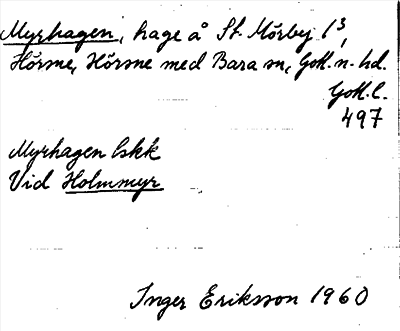 Myrhagen, hage å St. Mörbej 1³,
Hörsne, Hörsne med Bara sn, Gotl. n. hd.
Gotl. l.
497
Myrhagen lskk
Vid Holmmyr
Inger Eriksson 1960